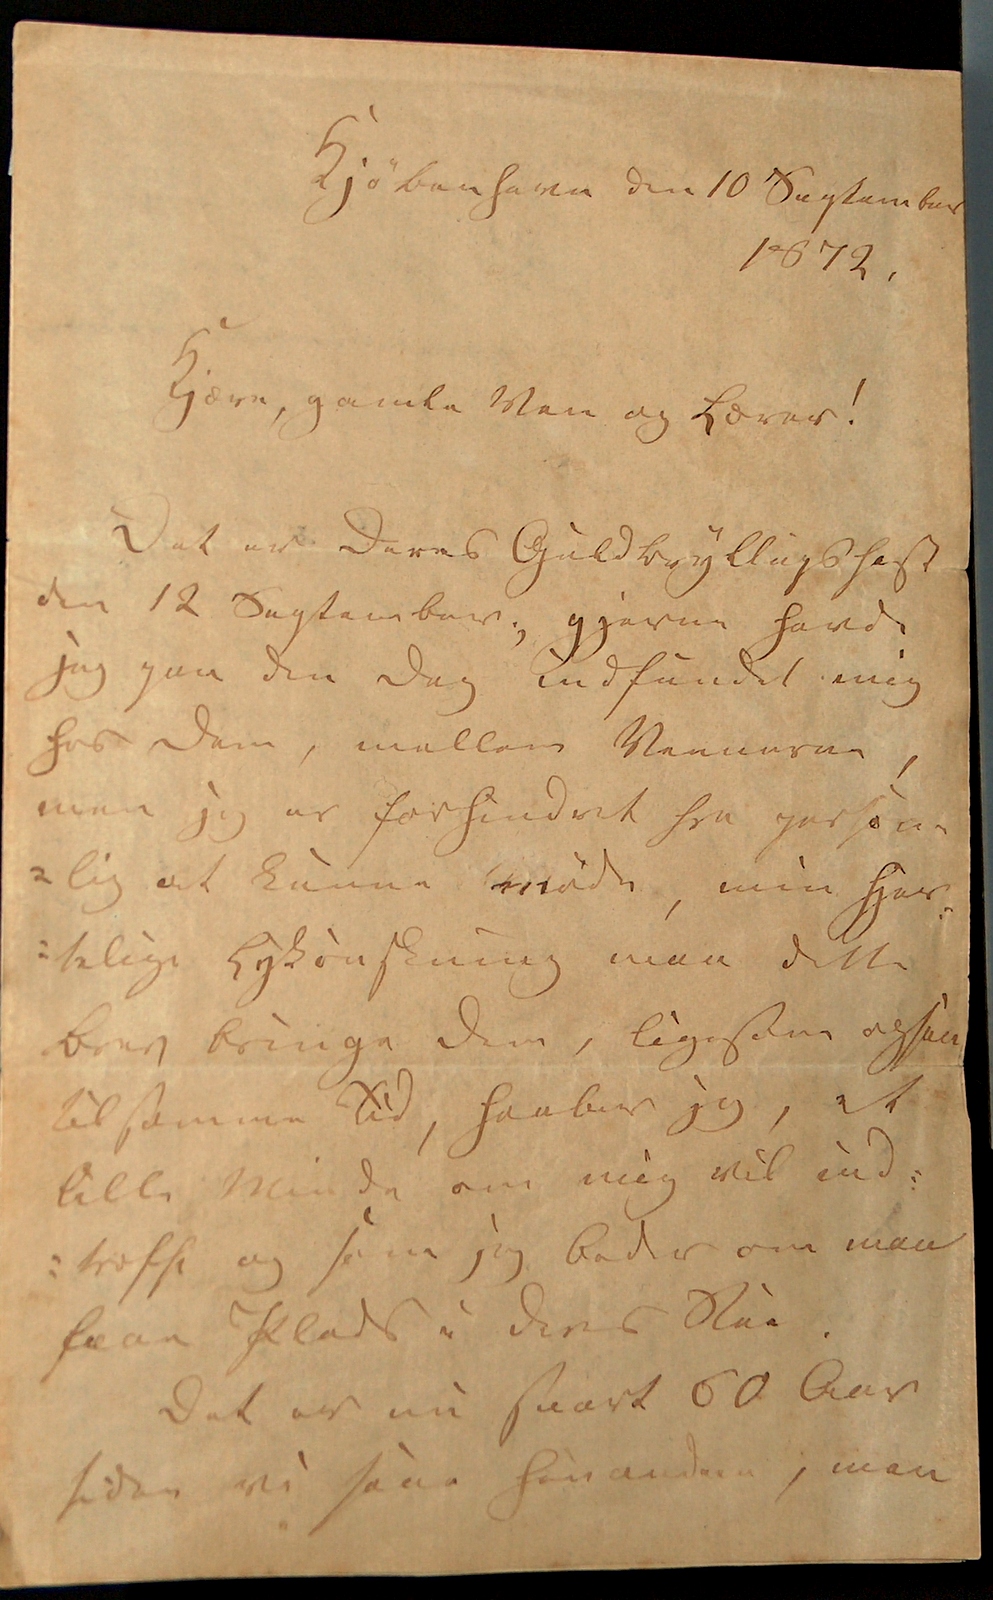 Kjöbenhavn den 10 September
1872.
Kjære, gamle Ven og Lærer!
Det er Deres Guldbryllupsfest
den 12 September; gjerne havde
jeg paa den Dag indfundet mig
hos Dem, mellem Vennerne,
men jeg er forhindret fra person-
-lig at kunne møde, min hjer-
-telige Lykønskning maa dette
Brev bringe Dem, ligesom ogsaa
til samme Tid, haaber jeg, et
lille Minde om mig vil ind-
-træffe og som jeg beder om maa
faae Plads i deres Stue.
Det er nu snart 60 Aar
siden vi saae hinanden, men